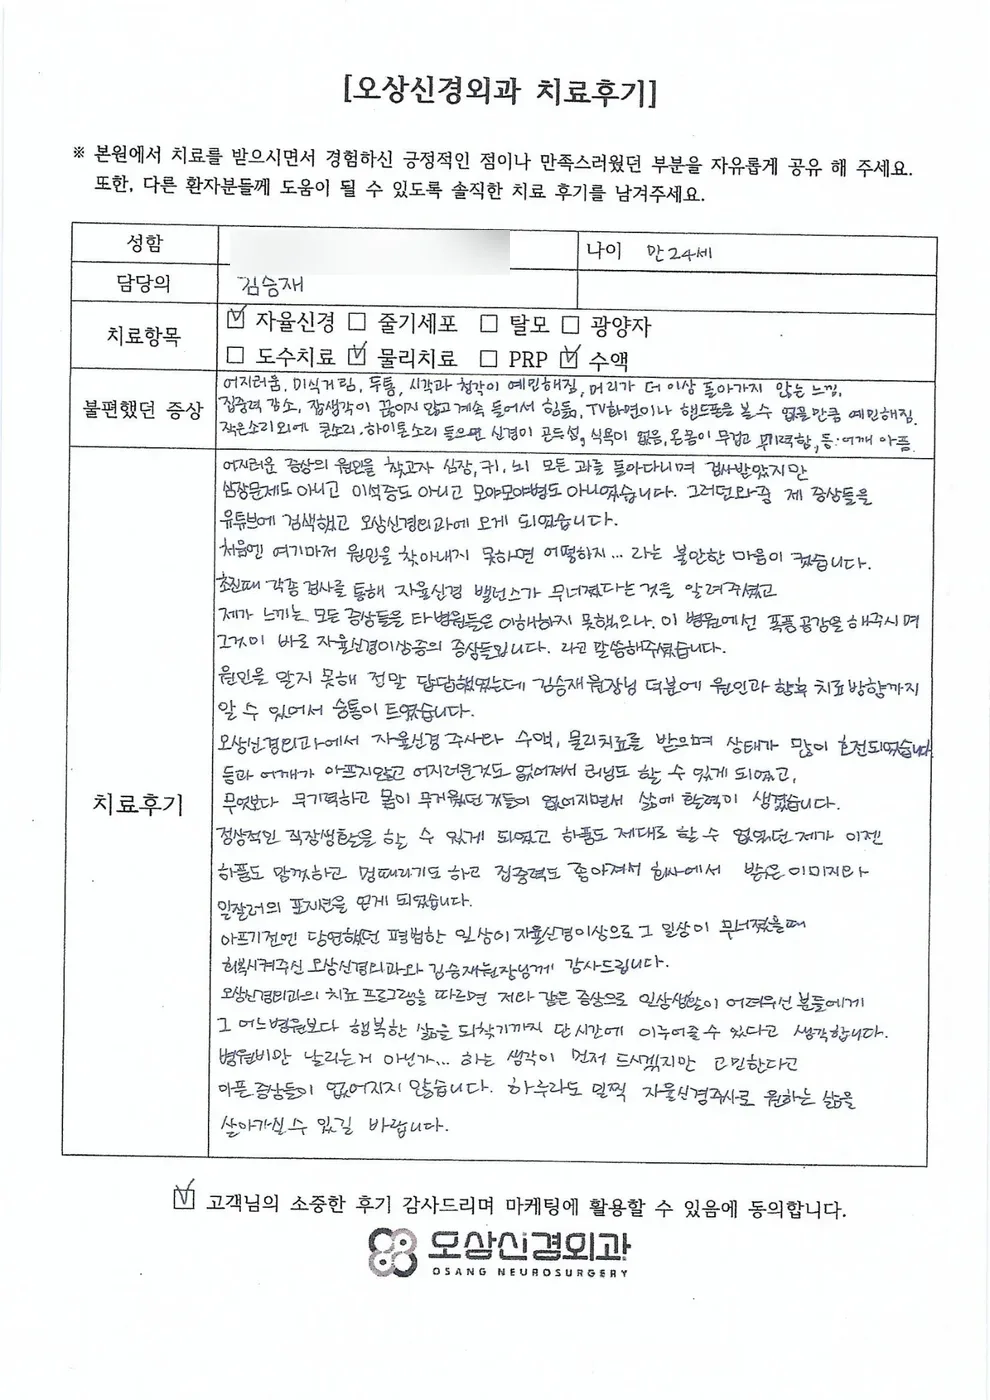 [오상신경외과 치료후기]
※ 본원에서 치료를 받으시면서 경험하신 긍정적인 점이나 만족스러웠던 부분을 자유롭게 공유 해 주세요.
또한, 다른 환자분들께 도움이 될 수 있도록 솔직한 치료 후기를 남겨주세요.
성함 나이 만 24세
담당의 김승재
치료항목 ☑ 자율신경 ☐ 줄기세포 ☐ 탈모 ☐ 광양자
☐ 도수치료 ☑ 물리치료 ☐ PRP ☑ 수액
불편했던 증상
어지러움, 미식거림, 두통, 시각과 청각이 예민해짐, 머리가 더 이상 돌아가지 않는 느낌,
집중력 감소, 잡생각이 끊이지 않고 계속 들어서 힘듦, TV화면이나 핸드폰을 볼 수 없을만큼 예민해짐.
작은소리 외에 큰소리·하이톤소리 들으면 신경이 곤두섬, 식욕이 없음, 온몸이 무겁고 무기력함, 등·어깨 아픔.
치료후기
어지러운 증상의 원인을 찾고자 심장, 귀, 뇌 모든 과를 돌아다니며 검사받았지만
심장문제도 아니고 이석증도 아니고 모야모야병도 아니였습니다. 그러던와중 제 증상들을
유튜브에 검색했고 오상신경외과에 오게 되었습니다.
처음엔 여기마저 원인을 찾아내지 못하면 어떻하지... 라는 불안한 마음이 컸습니다.
초진때 각종 검사를 통해 자율신경 밸런스가 무너졌다는 것을 알려주셨고
제가 느끼는 모든 증상들을 타병원들은 이해하지 못했으나, 이 병원에선 폭풍공감을 해주시며
그것이 바로 자율신경이상증의 증상들입니다. 라고 말씀해주셨습니다.
원인을 알지 못해 정말 답답했었는데 김승재 원장님 덕분에 원인과 향후 치료방향까지
알 수 있어서 숨통이 트였습니다.
오상신경외과에서 자율신경 주사와 수액, 물리치료를 받으며 상태가 많이 호전되었습니다
등과 어깨가 아프지않고 어지러운것도 없어져서 러닝도 할 수 있게 되었고,
무엇보다 무기력하고 몸이 무거웠던 것들이 없어지면서 삶에 활력이 생겼습니다.
정상적인 직장생활을 할 수 있게 되었고 하품도 제대로 할 수 없었던 제가 이젠
하품도 맘껏하고 멍때리기도 하고 집중력도 좋아져서 회사에서 밝은 이미지와
일잘러의 포지션을 얻게 되었습니다.
아프기전엔 당연했던 평범한 일상이 자율신경이상으로 그 일상이 무너졌을때
회복시켜주신 오상신경외과와 김승재원장님께 감사드립니다.
오상신경외과의 치료 프로그램을 따르면 저와 같은 증상으로 일상생활이 어려우신 분들에게
그 어느병원보다 행복한 삶을 되찾기까지 단시간에 이루어질 수 있다고 생각합니다.
병원비만 날리는거 아닌가... 하는 생각이 먼저 드시겠지만 고민한다고
아픈 증상들이 없어지지 않습니다. 하루라도 일찍 자율신경주사로 원하는 삶을
살아가실 수 있길 바랍니다.
☑ 고객님의 소중한 후기 감사드리며 마케팅에 활용할 수 있음에 동의합니다.
오상신경외과
OSANG NEUROSURGERY